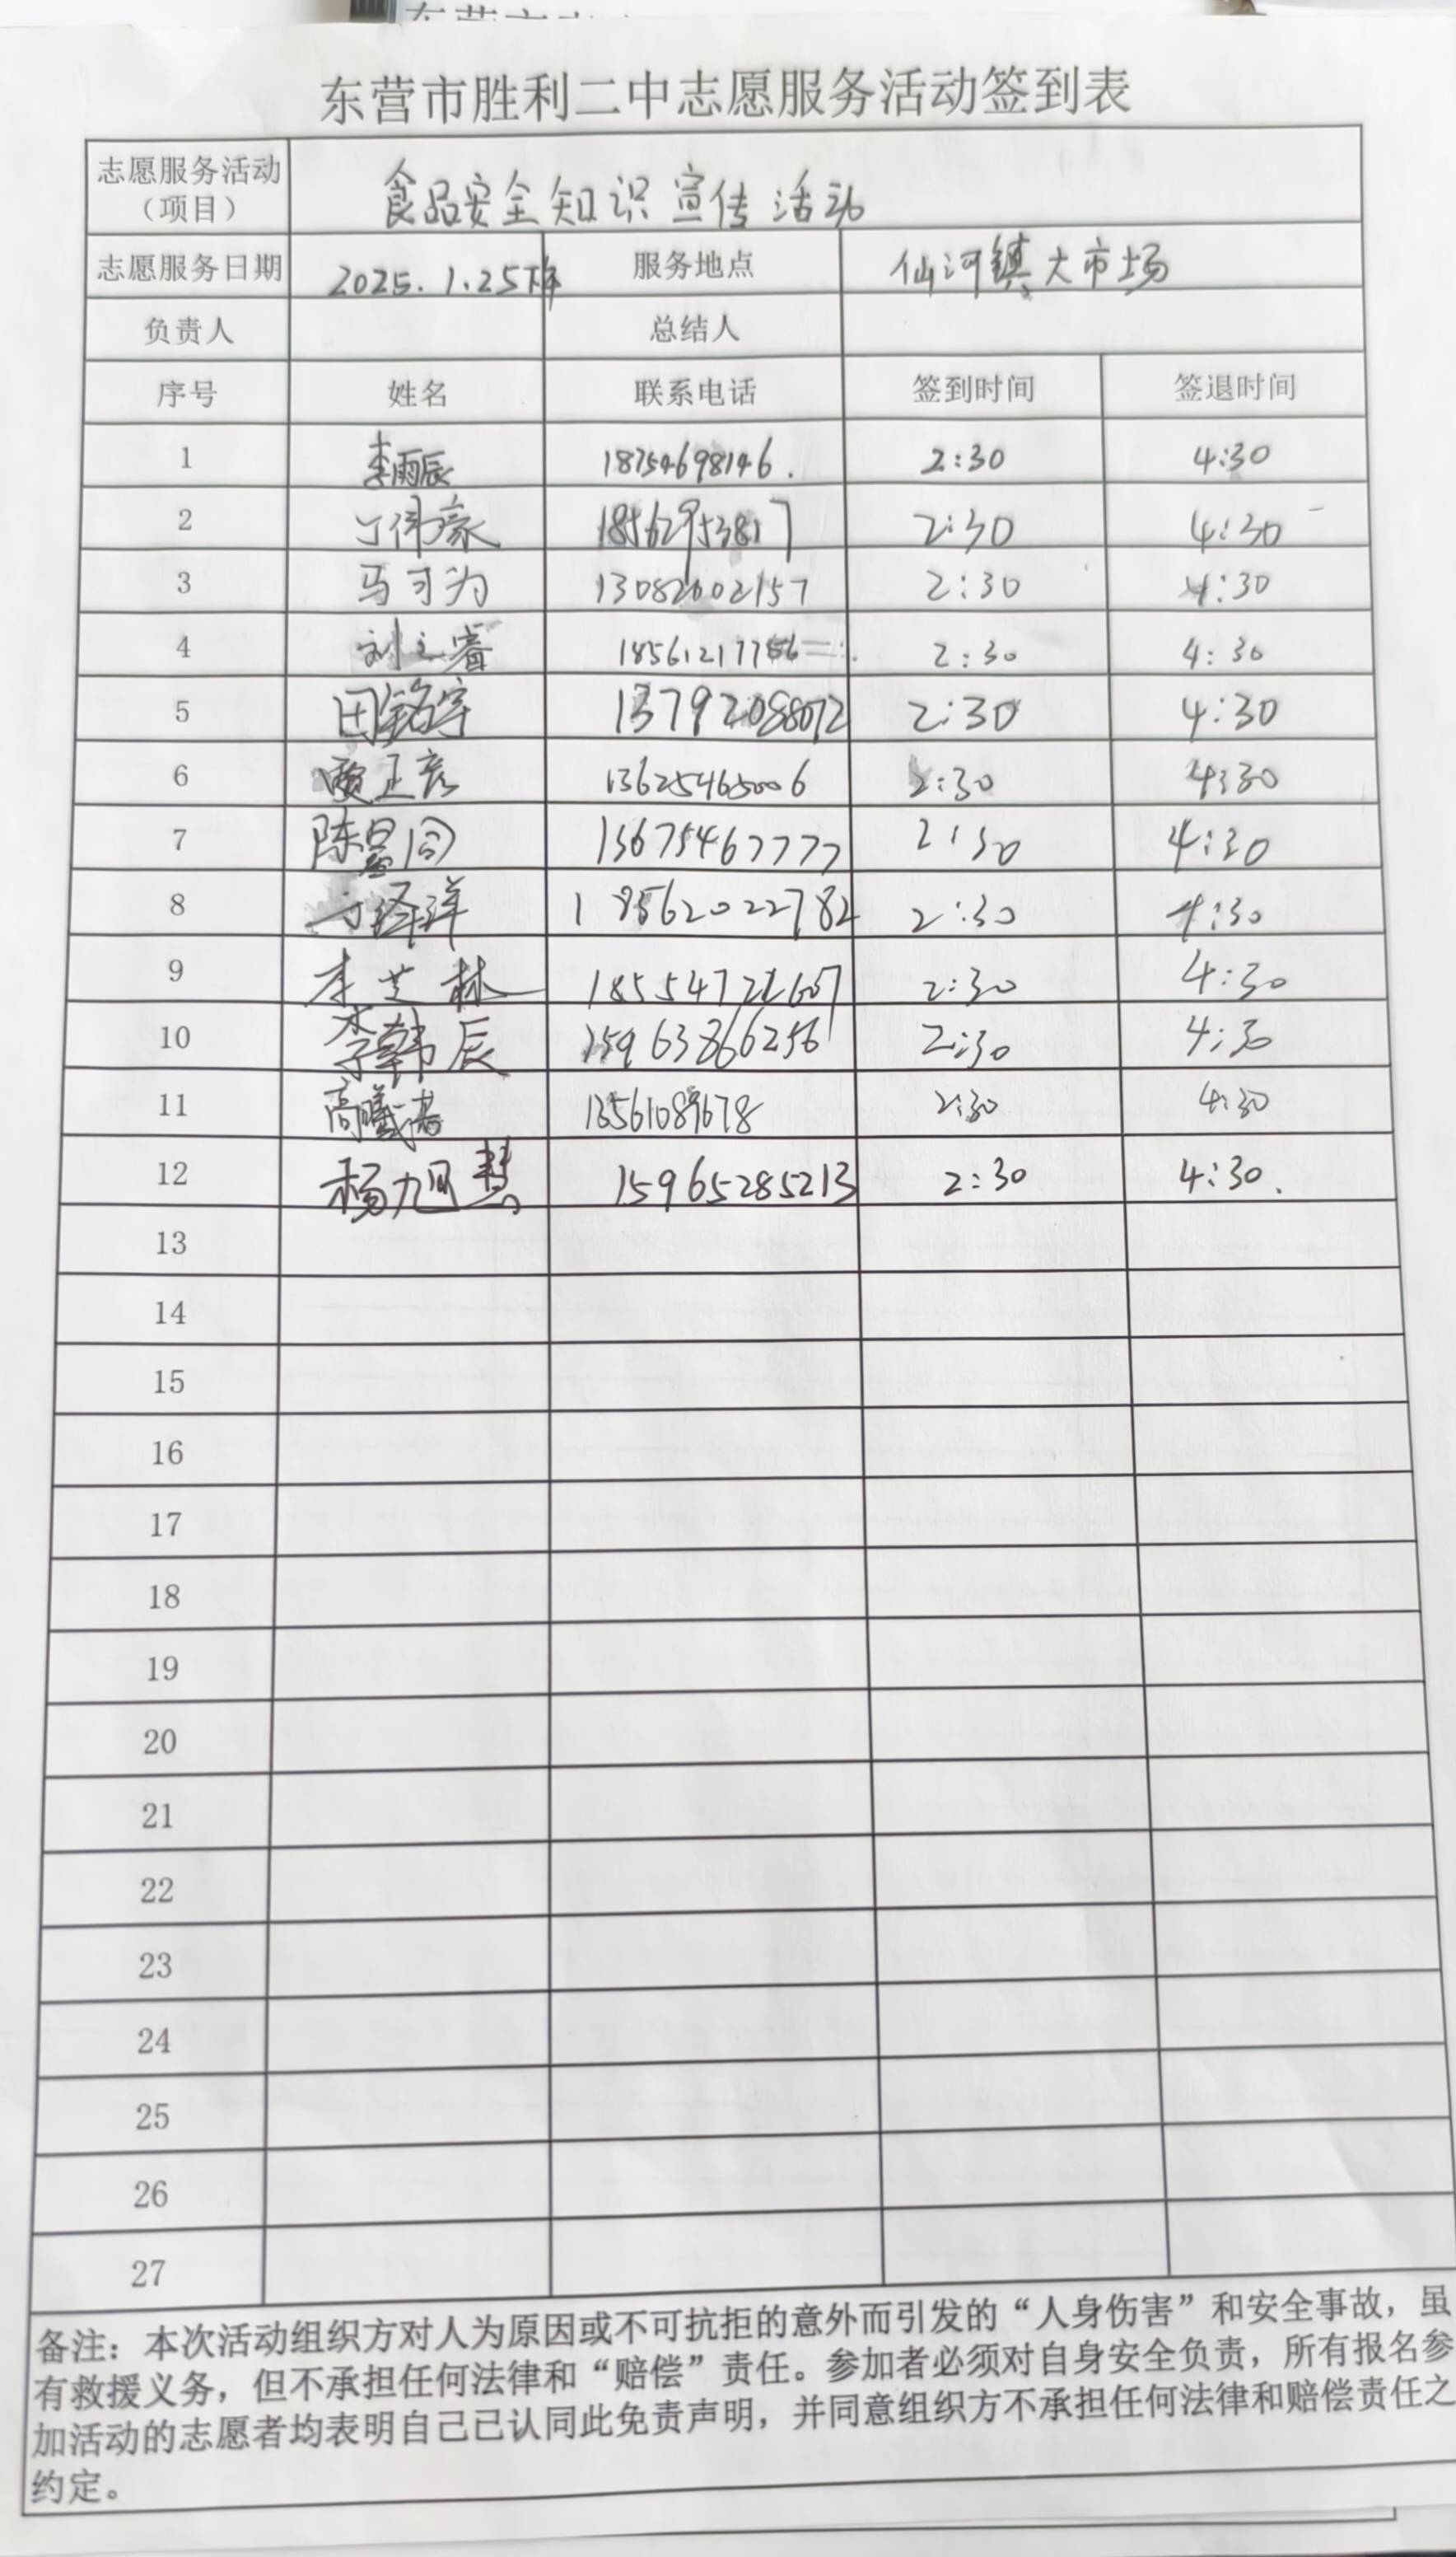 东营市胜利二中志愿服务活动签到表
志愿服务活动（项目） 食品安全知识宣传活动
志愿服务日期 2025.1.25下午 服务地点 仙河镇大市场
负责人 总结人
序号 姓名 联系电话 签到时间 签退时间
1 李雨辰 18754698146. 2:30 4:30
2 丁伟豪 18562953817 2:30 4:30
3 马可为 13082602157 2:30 4:30
4 刘之睿 2:30 4:30
5 田铭宇 13792088072 2:30 4:30
6 正彦 13625465006 2:30 4:30
7 陈昱同 13675467777 2:30 4:30
8 丁泽洋 18562022782 2:30 4:30
9 李芝林 2:30 4:30
10 李韩辰 15963866256 2:30 4:30
11 高曦 13561089678 2:30 4:30
12 杨旭慧 15965285213 2:30 4:30.
13
14
15
16
17
18
19
20
21
22
23
24
25
26
27
备注：本次活动组织方对人为原因或不可抗拒的意外而引发的“人身伤害”和安全事故，虽
有救援义务，但不承担任何法律和“赔偿”责任。参加者必须对自身安全负责，所有报名参
加活动的志愿者均表明自己已认同此免责声明，并同意组织方不承担任何法律和赔偿责任之
约定。